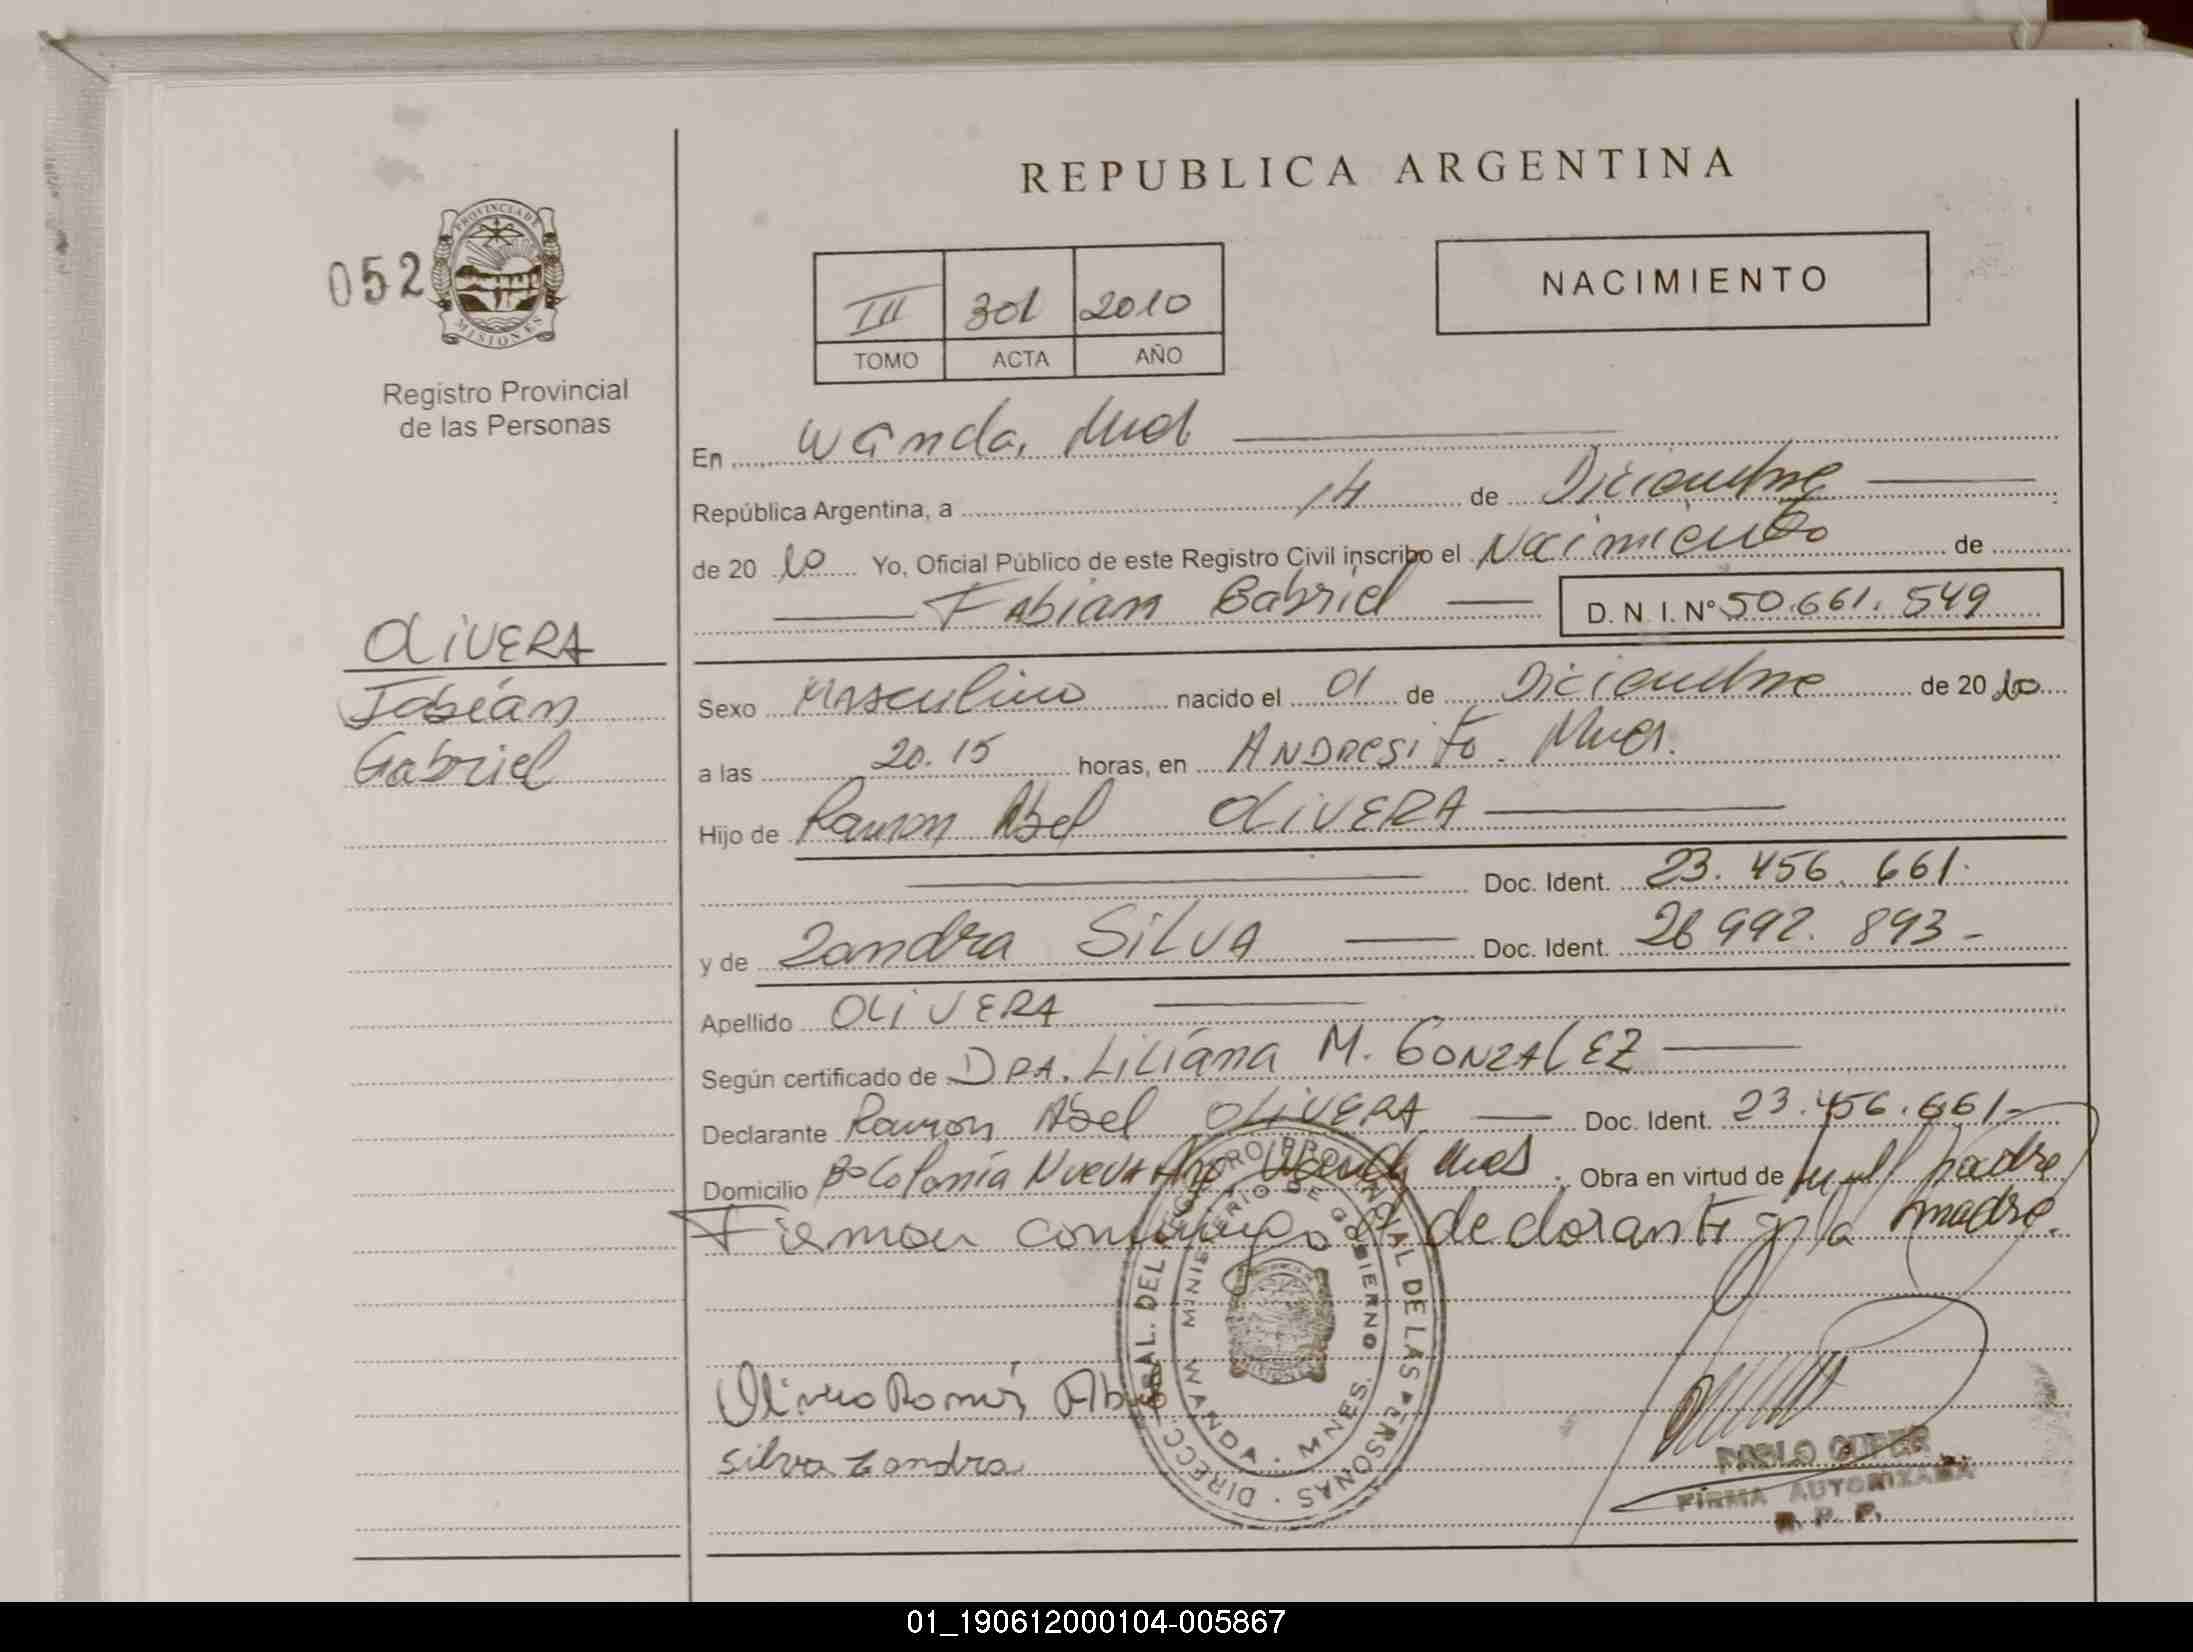 REPUBLICA ARGENTINA
052
PROVINCIA DE MISIONES
Registro Provincial
de las Personas
III 301 2010
TOMO ACTA AÑO
NACIMIENTO
En Wanda,
República Argentina, a 14 de Diciembre
de 2010 Yo, Oficial Público de este Registro Civil inscribo el Nacimiento de
Fabian Gabriel D. N. I. N° 50.661.549
OLIVERA
Fabián
Gabriel
Sexo Masculino nacido el 01 de Diciembre de 2010
a las 20.15 horas, en ANDRESITO.
Hijo de Ramon Abel OLIVERA
Doc. Ident. 23.456.661.
y de Zandra SILVA Doc. Ident. 26 992. 893-
Apellido OLIVERA
Según certificado de DRA. Liliana M. GONZALEZ
Declarante Ramon Abel OLIVERA Doc. Ident. 23.456.661-
Domicilio Bo Colonia Nueva Obra en virtud de padre
Firman conmigo el declarante y la madre.
Olivera Ramón Abel
Silva Zandra
DIRECC. GRAL. DEL REGISTRO PROVINCIAL DE LAS PERSONAS
MINISTERIO DE GOBIERNO
WANDA - MNES.
PABLO
FIRMA AUTORIZADA
R. P. P.
01_190612000104-005867